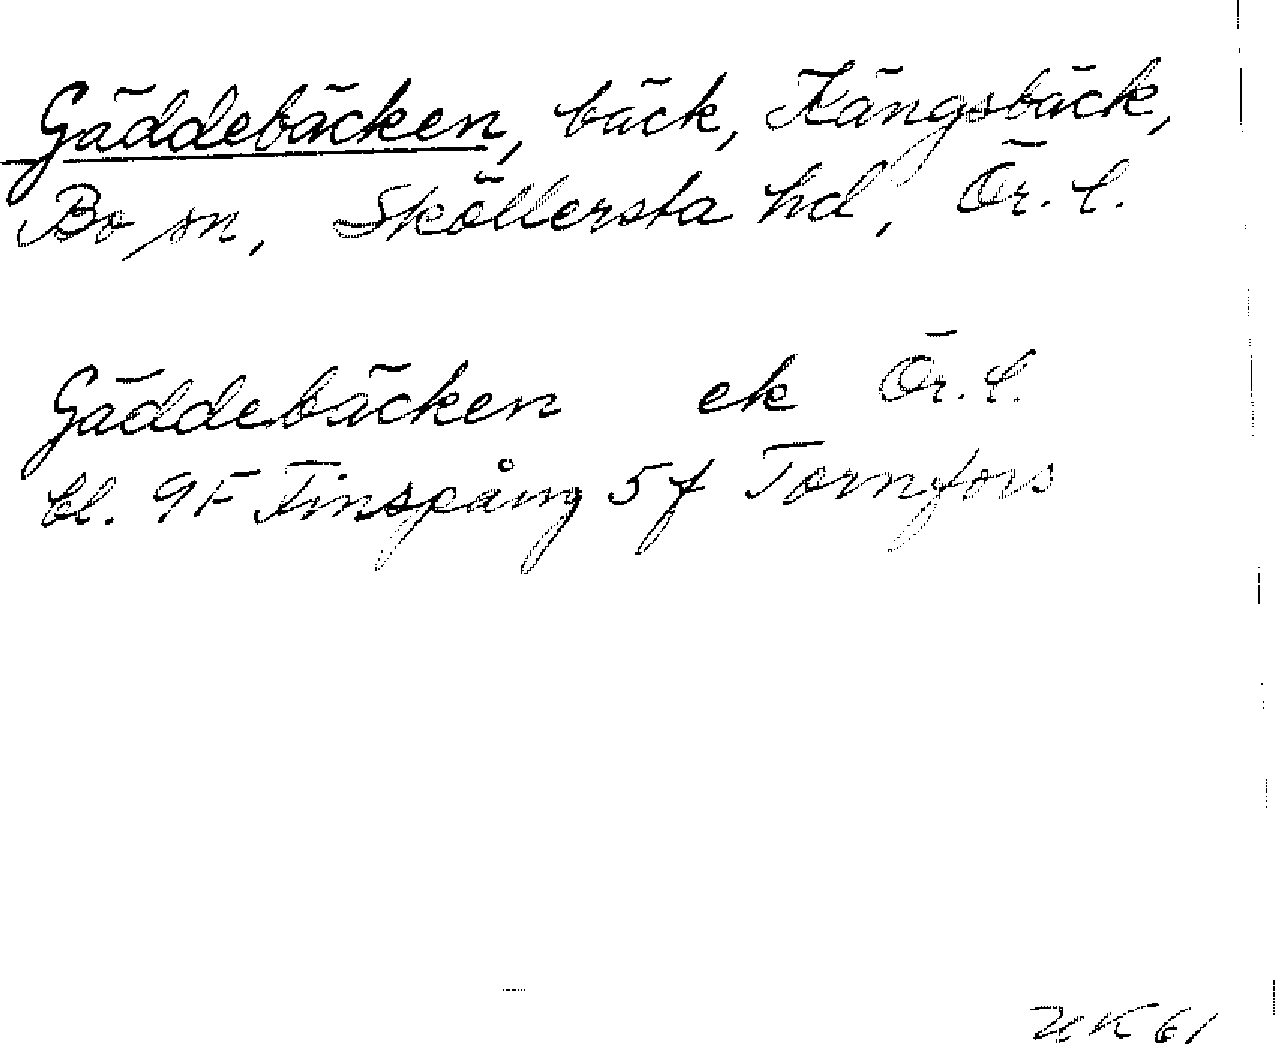 Gäddebäcken, bäck, Kängsbäck,
Bo sn, Sköllersta hd, Ör. l.
Gäddebäcken ek Ör. l.
bl. 9F Finspång 5f Tornfors
UK 61